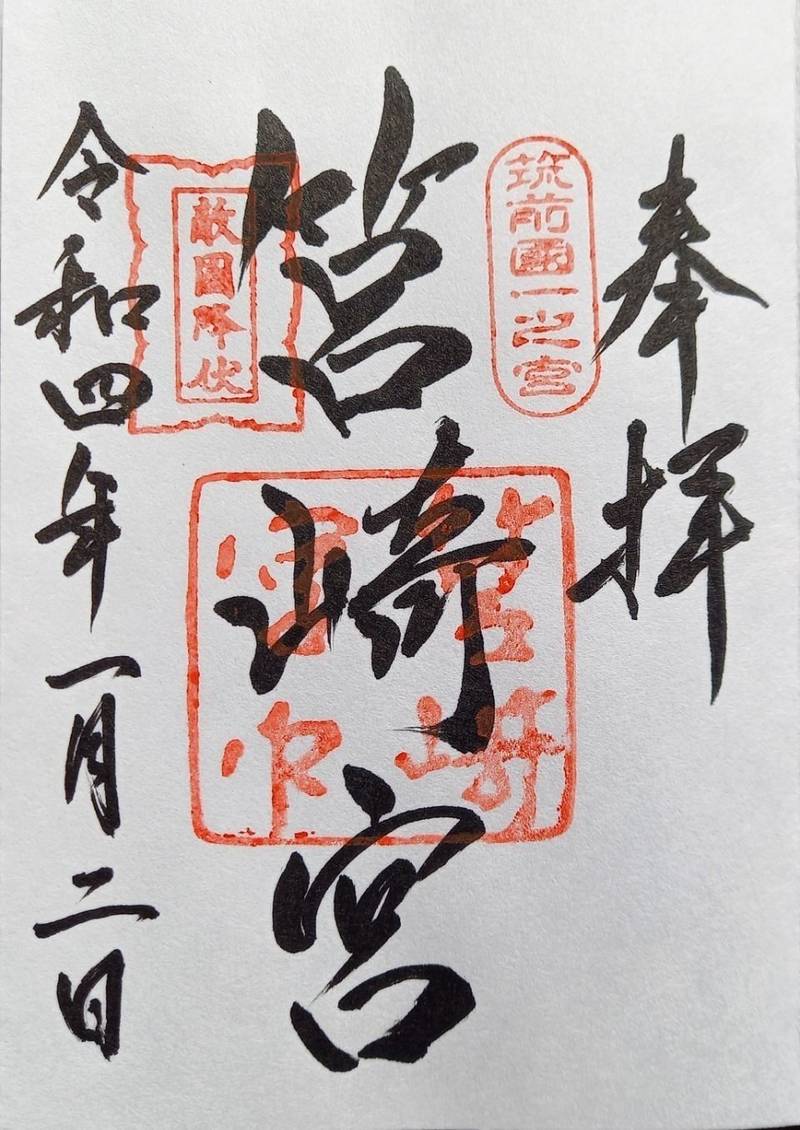 奉拝
筑前國一之宮
筥崎宮
筥崎宮印
敵國降伏
令和四年一月二日